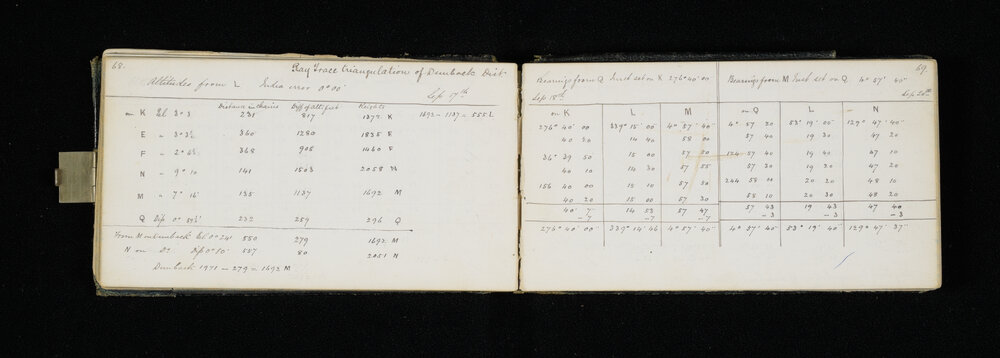 68.
Ray Trace triangulation of Dunback Dist.
Altitudes from L Index error 0° 00'
Sep 17th
Distance in chains Diff of alt feet Heights
on K El 3° 3 231 817 1372 K 1692 - 1137 = 555 L
E " 3° 3½ 360 1280 1835 E
F " 2° 368 905 1460 F
N " 9° 10 141 1503 2058 N
M " 7° 16' 135 1137 1692 M
Q Dip 0° 232 259 296 Q
From M on Dunback El 0° 241 550 279 1692 M
N on Do Dip 0° 10' 557 80 2051 N
Dunback 1971 - 279 = 1692 M
69.
Bearings from Q Inst set on K 276° 40' 00
Sep 18th
on K L M
276° 40' 00 339° 15' 00" 4° 57' 40"
40 20 14 40 58 00
36° 39 50 15 00 57 50
40 10 14 30 57 55
156 40 00 15 10 57 50
40 20 15 00 57 30
40' 7" 14 53 57 47
-7 -7 -7
276° 40' 00 339° 14' 46 4° 57' 40"
Bearings from M Inst set on Q 4° 57' 40"
Sep 20th
on Q L N
4° 57 30 53° 19' 00 129° 47' 40"
57 40 19 30 47 20
124 57 40 19 40 47 10
57 30 19 20 47 20
244 58 00 20 20 48 10
58 10 20 30 48 20
57 43 19 43 47 40
-3 -3 -3
4° 57' 40 53° 19' 40 129° 47' 37"